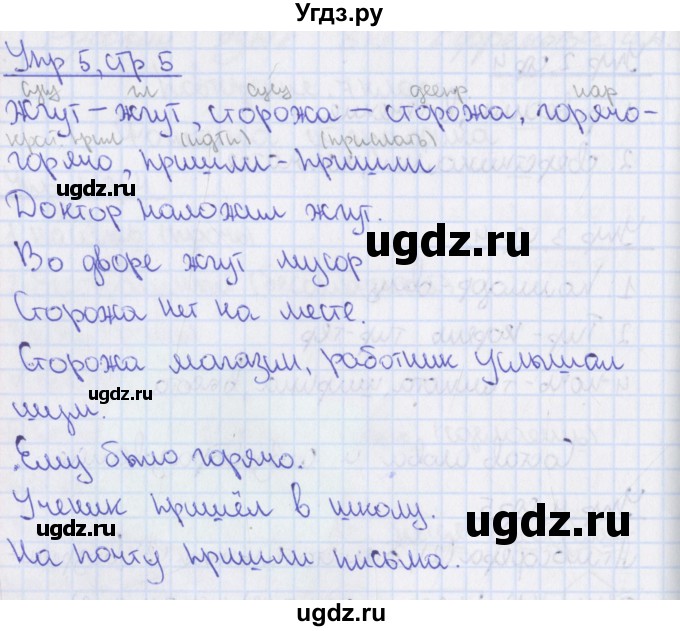 Угдз.ру
Упр 5, стр 5
сущ гл сущ деепр нар
жгут – жгут, сторожа – сторожа, горячо-
крат. прил (идти) (прислать)
горячо, пришли – пришли
ugdz.ru
Доктор наложил жгут.
ugdz.ru
Во дворе жгут мусор
ugdz.ru
Сторожа нет на месте.
Сторожа магазин, работник услышал
шум.
Ему было горячо.
Ученик пришёл в школу.
ugdz.ru
ugdz.ru
На почту пришли письма.
ugdz.ru